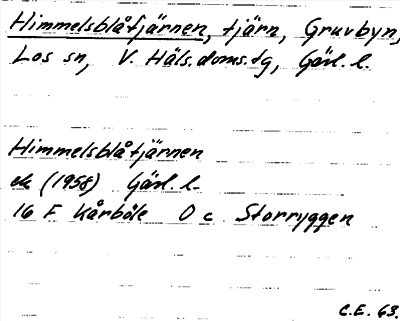 Himmelsblåtjärnen, tjärn, Gruvbyn,
Los sn, V. Häls.doms.tg, Gävl. l.
Himmelsblåtjärnen
ek (1958) Gävl. l.
16 F Kårböle 0 c Storryggen
C.E. 63.